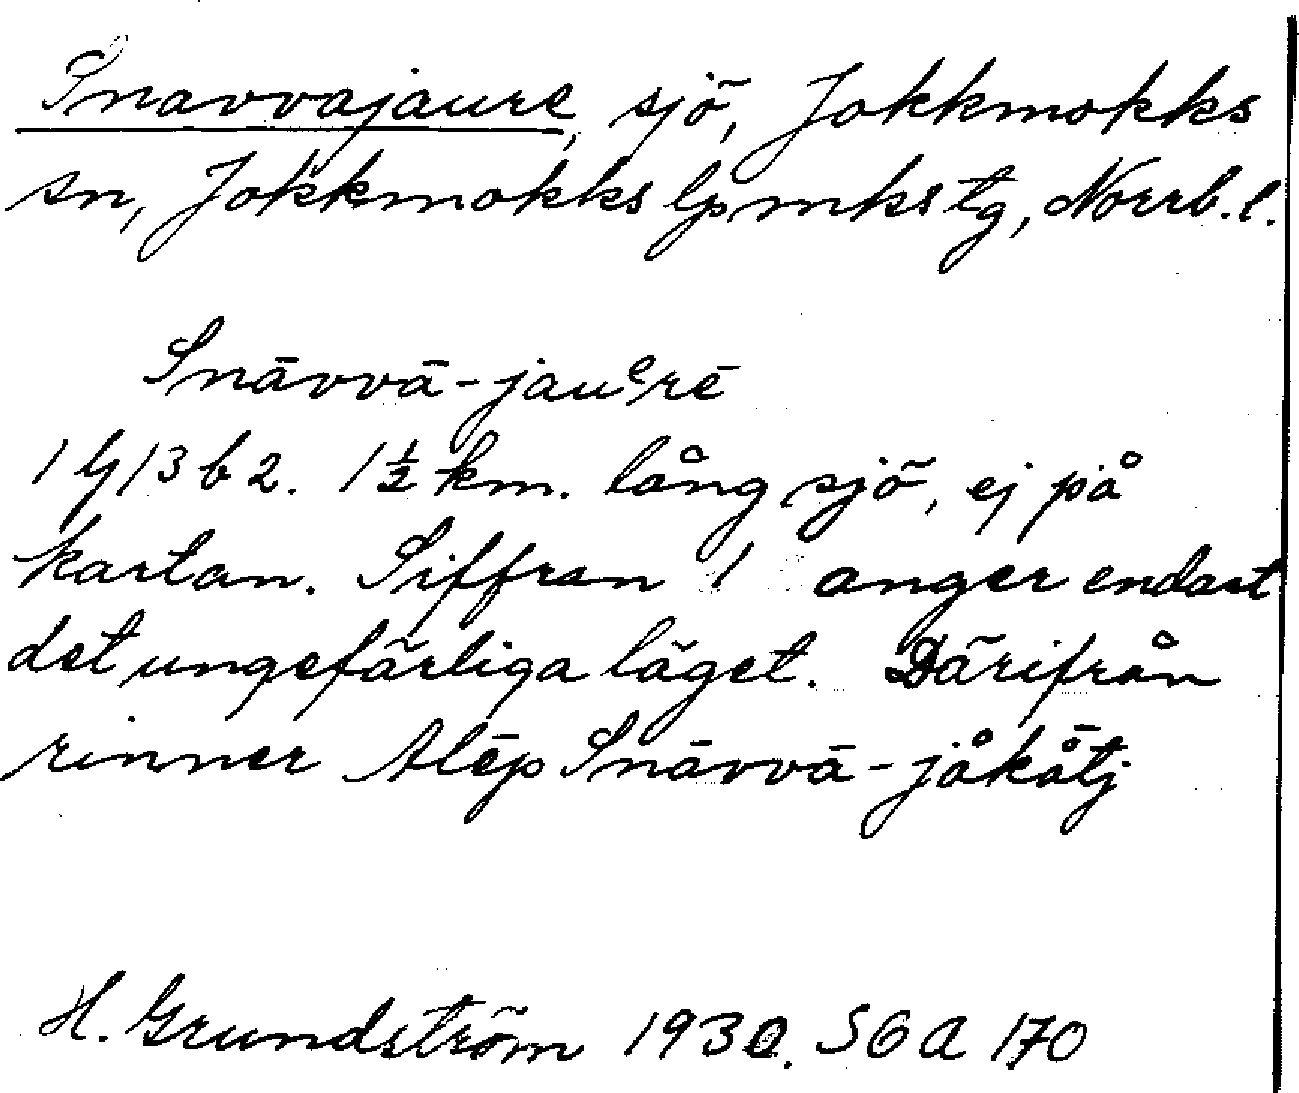 Snavvajaure, sjö, Jokkmokks
sn, Jokkmokks lpmkstg, Norrb. l.
Snāvvā-jauᵉrē
1 G 13 b 2. 1½ km. lång sjö, ej på
kartan. Siffran 1 anger endast
det ungefärliga läget. Därifrån
rinner Alēp Snāvvā-jåkåtj
H. Grundström 1930. S6a 170